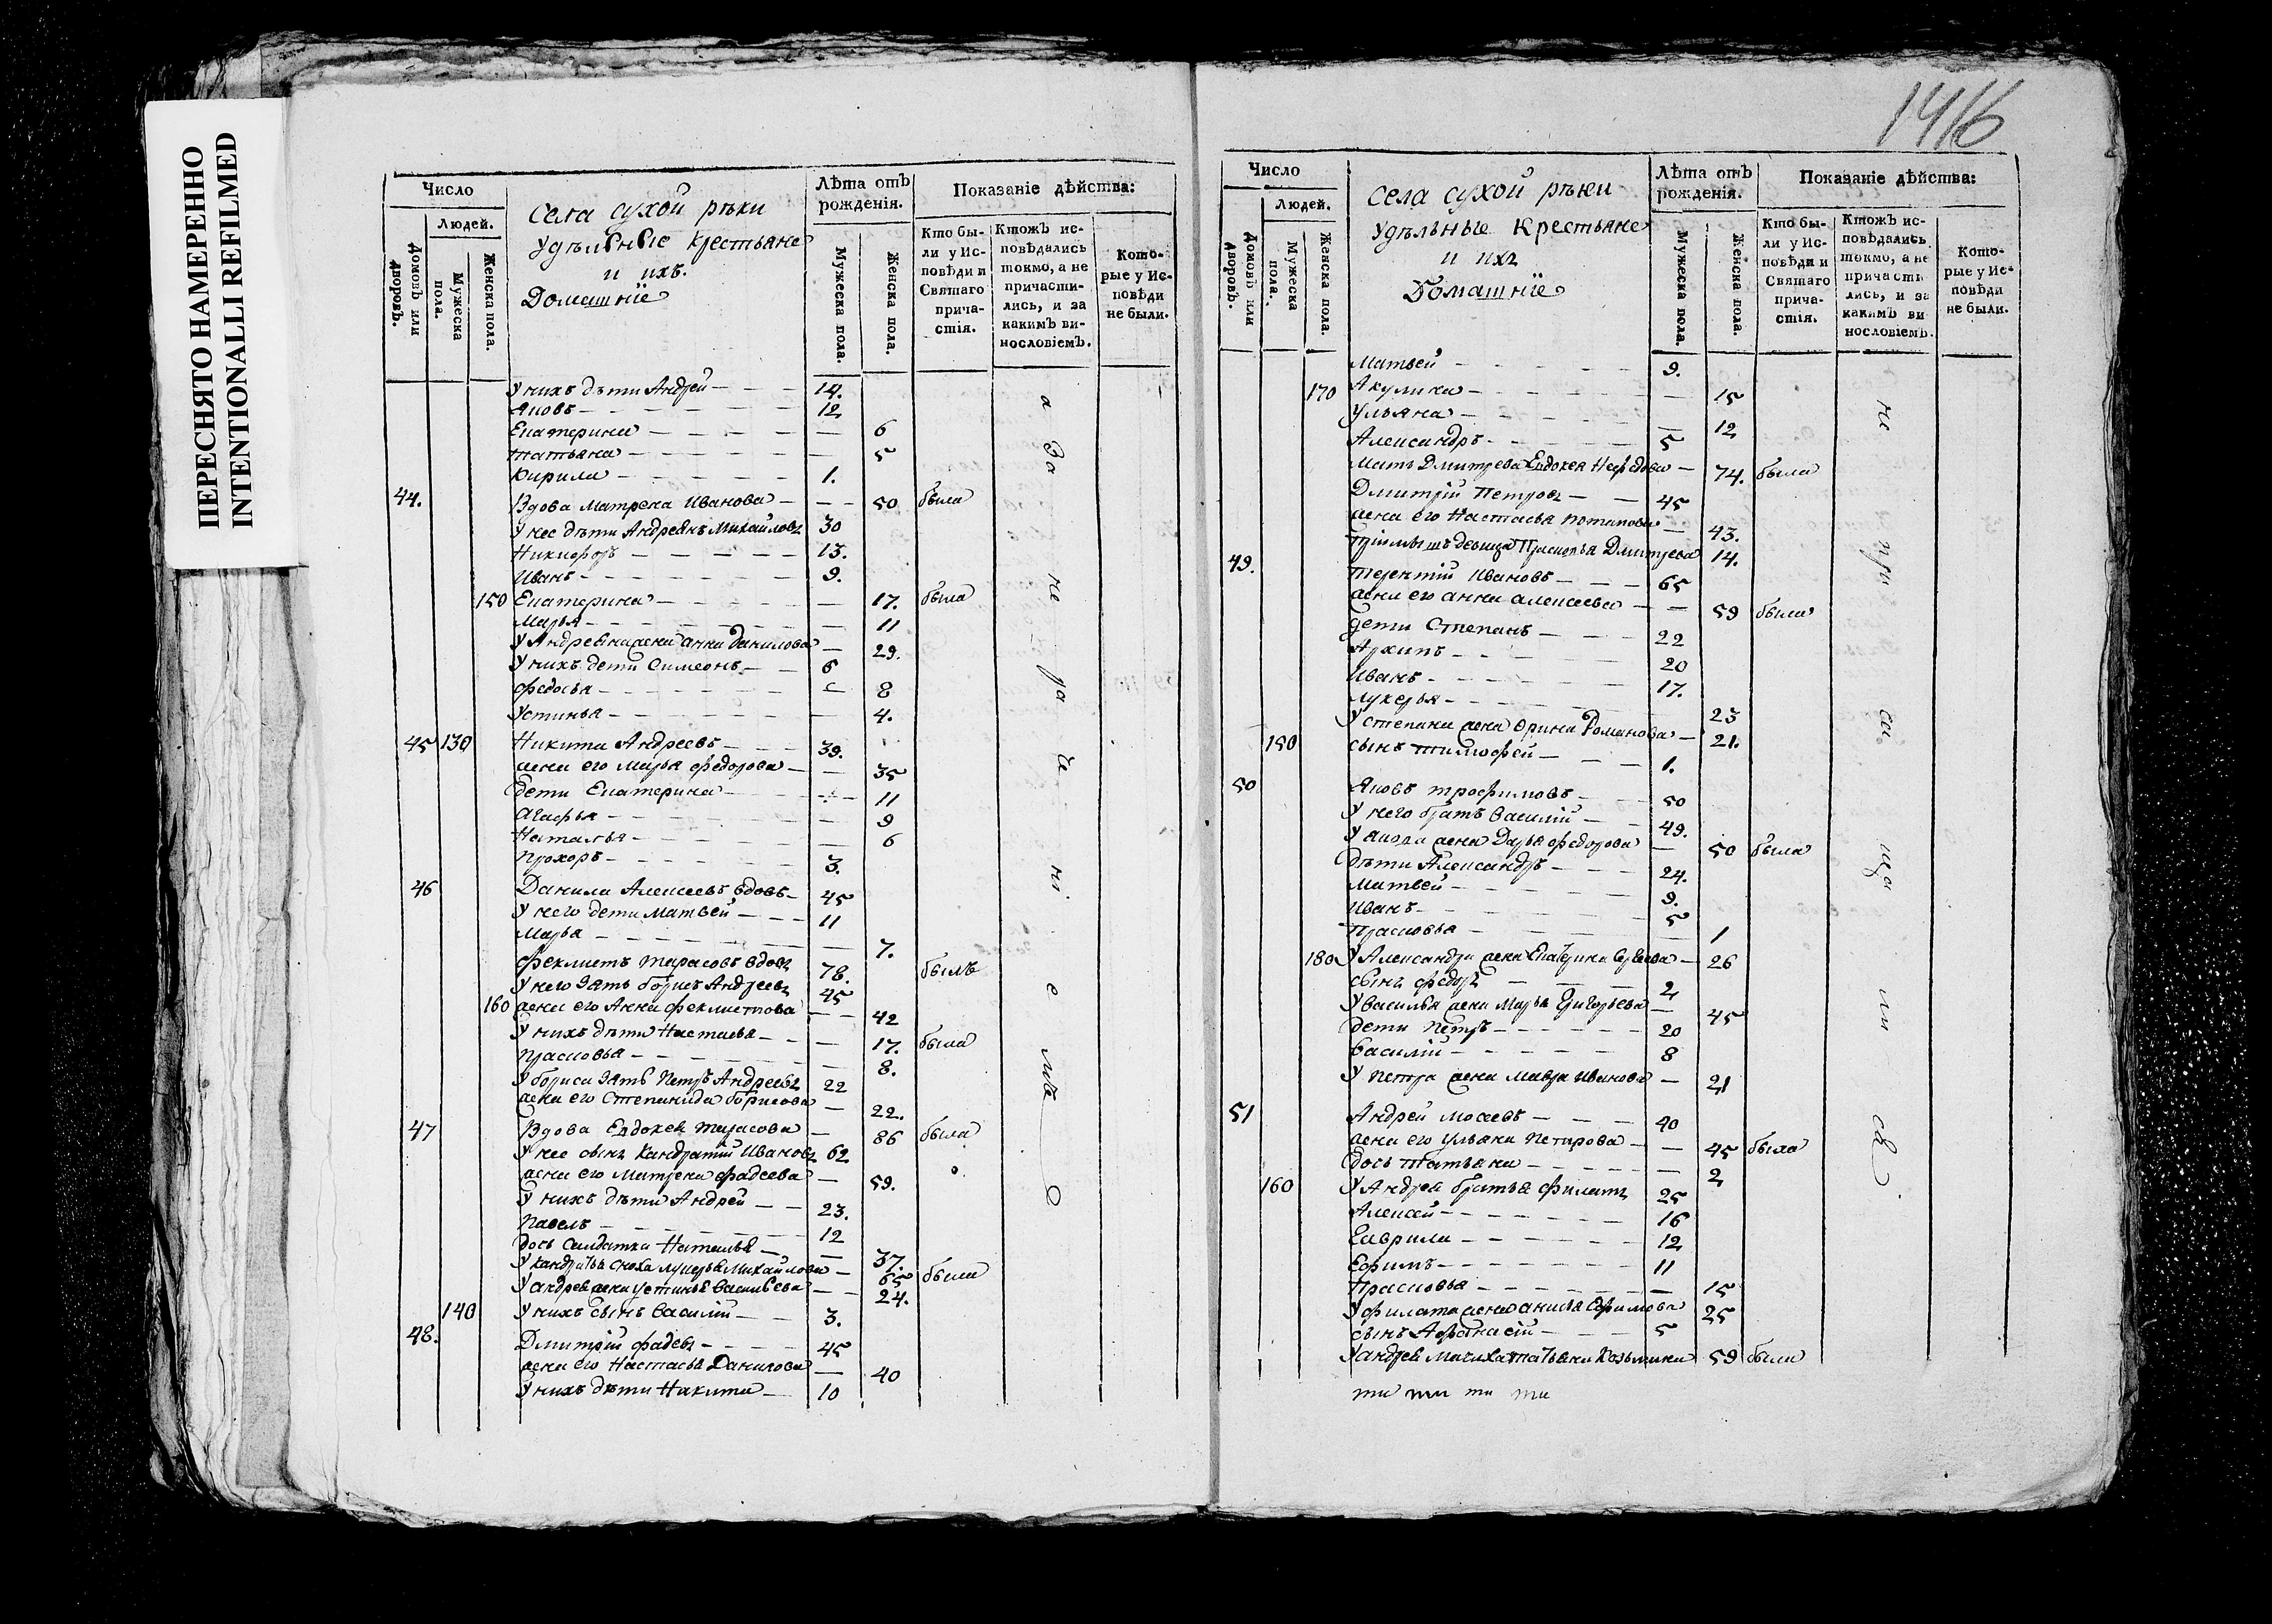 ПЕРЕСНЯТО НАМЕРЕННО
INTENTIONALLI REFILMED
1416
Число
Людей.
Домовъ или дворовъ.
Мужеска пола.
Женска пола.
Села сухой рѣки
Удѣльные Крестьяне
и ихъ.
Домашніе
Лѣта отъ рожденія.
Мужеска пола.
Женска пола.
Показаніе дѣйства:
Кто бы-
ли у Ис-
повѣди и
Святаго
прича-
стія.
Ктожъ ис-
повѣдались
токмо, а не
причасти-
лись, и за
какимъ ви-
нословіемъ.
Кото-
рые у Ис-
повѣди
не были.
У нихъ дѣти Андрей 14.
Яковъ 12
Екатерина 6
татьяна 5
Кирила 1.
44. Вдова Матрена Иванова 50 была
У нее дѣти Андреянъ Михайловъ 30
Никифоръ 13.
Иванъ 9.
150 Екатерина 17. была
Марья 11
У Андреяна жена анна Данилова 29.
У нихъ дети Симеонъ 6
федосья 8
Устинья 4.
45 130 Никита Андреевъ 39.
жена его Марья федорова 35
Дети Екатерина 11
Агафья 9
Наталья 6
Прохоръ 3.
46 Данила Алексеевъ вдовъ 45
У него дети Матвей 11
Марья 7.
феклистъ тарасовъ вдовъ 78. былъ
У него зять борисъ Андреевъ 45
160 жена его Анна феклистова 42
У нихъ дѣти Настасья 17. была
Прасковья 8.
У бориса зять Петръ Андреевъ 22
жена его Степанида борисова 22.
47 Вдова Евдокея тарасова 86 была
У нее сынъ Кандратій Ивановъ 62
жена его Матрена фадеева 59.
У нихъ дѣти Андрей 23.
Павелъ 12
дочь Салдатка Наталья 37.
У кандратья сноха лукерья Михайлова 65 была
У андрея жена устинья Васильева 24.
140 У нихъ сынъ Василій 3.
48. Дмитрій фадевъ 45
жена его Настасья Данилова 40
У нихъ дѣти Накита 10
Число
Людей.
Домовъ или дворовъ.
Мужеска пола.
Женска пола.
Села сухой рѣки
Удѣльные Крестьяне
и ихъ
Домашніе
Лѣта отъ рожденія.
Мужеска пола.
Женска пола.
Показаніе дѣйства:
Кто бы-
ли у Ис-
повѣди и
Святаго
прича-
стія.
Ктожъ ис-
повѣдались
токмо, а не
причасти
лись, и за
какимъ ви
нословіемъ.
Кото-
рые у Ис-
повѣди
не были.
Матвей 9.
170 Акулина 15
Ульяна 12
Александръ 5
Мать Дмитрева Евдокея Нефедова 74. была
Дмитрій Петровъ 45
жена его Настасья потапова 43.
девица Прасковья Дмитрева 14.
49. терентій Ивановъ 65
жена его анна алексеева 59 была
дети Степанъ 22
Архипъ 20
Иванъ 17.
лукерья 23
У степана жена Орина Романова 21.
150 сынъ тимофей 1.
50 Яковъ трофимовъ 50
У него братъ Василій 49.
У якова жена Дарья федорова 50 была
дѣти Александръ 24.
Матвей 9.
Иванъ 5
Прасковья 1
180 У Александра жена 26
сынъ федоръ 2
У Василья жена Марья Григорьева 45
Дети Петръ 20
Василій 8
У Петра жена Мавра Иванова 21
51 Андрей Мосеевъ 40
жена его Ульяна Петрова 45 была
дочь татьяна 2
160 У Андрея братья филатъ 25
Алексей 16
Гаврила 12
Ефимъ 11
Прасковья 15
У филата жена анисья Ефимова 25
сынъ Афанасій 5
У андрея мачиха татьяна Козьмина 59 была
ти ти ти ти